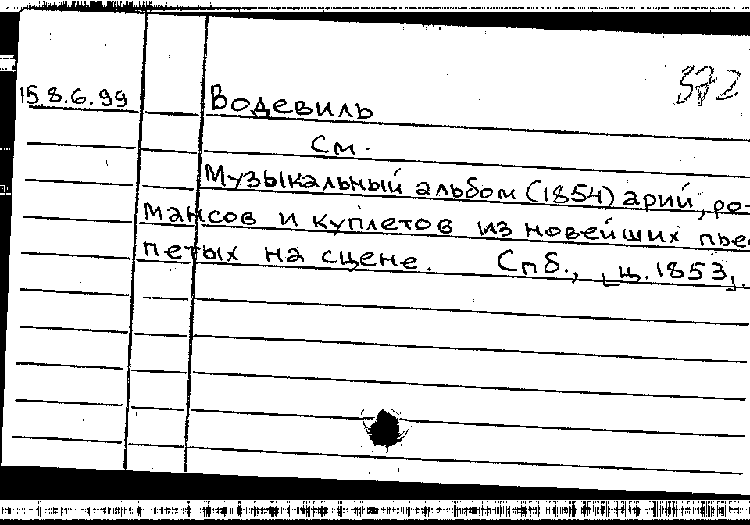 372
15 8.6.99 Водевиль
См.
Музыкальный альбом (1854) арий, ро-
мансов и куплетов из новейших пье
петых на сцене. Спб., [ц. 1853].